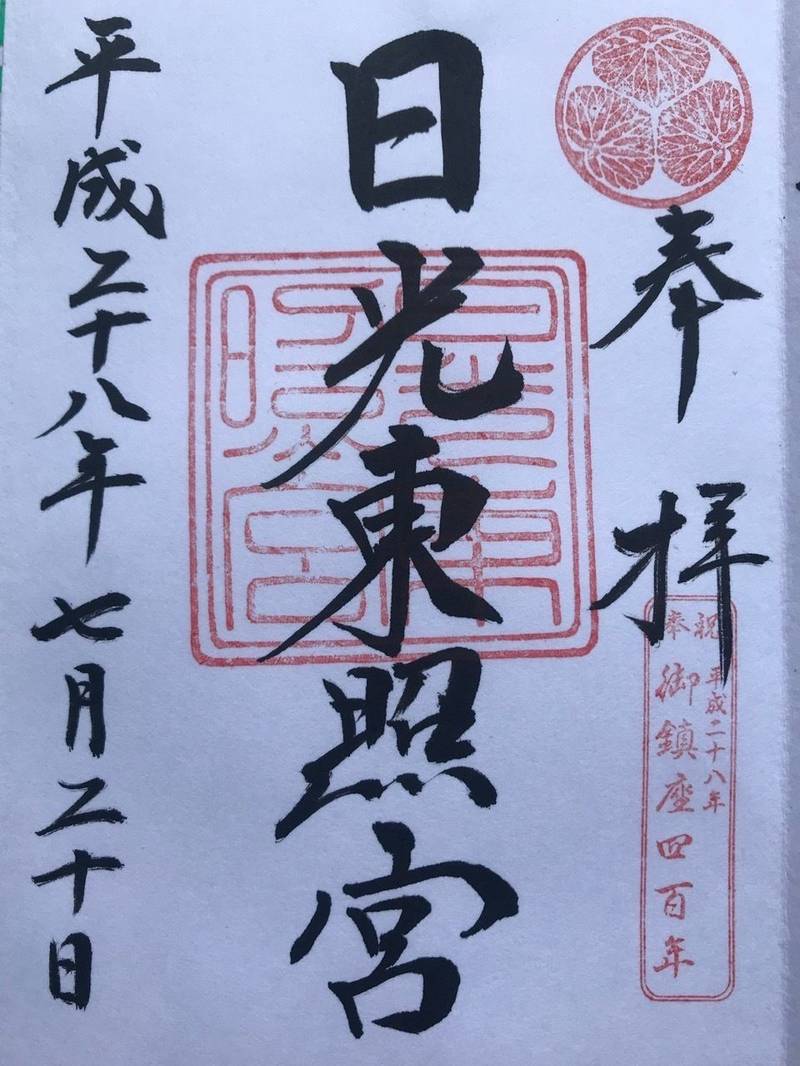 奉拝
奉祝
平成二十八年
御鎮座四百年
日光東照宮
平成二十八年七月二十日